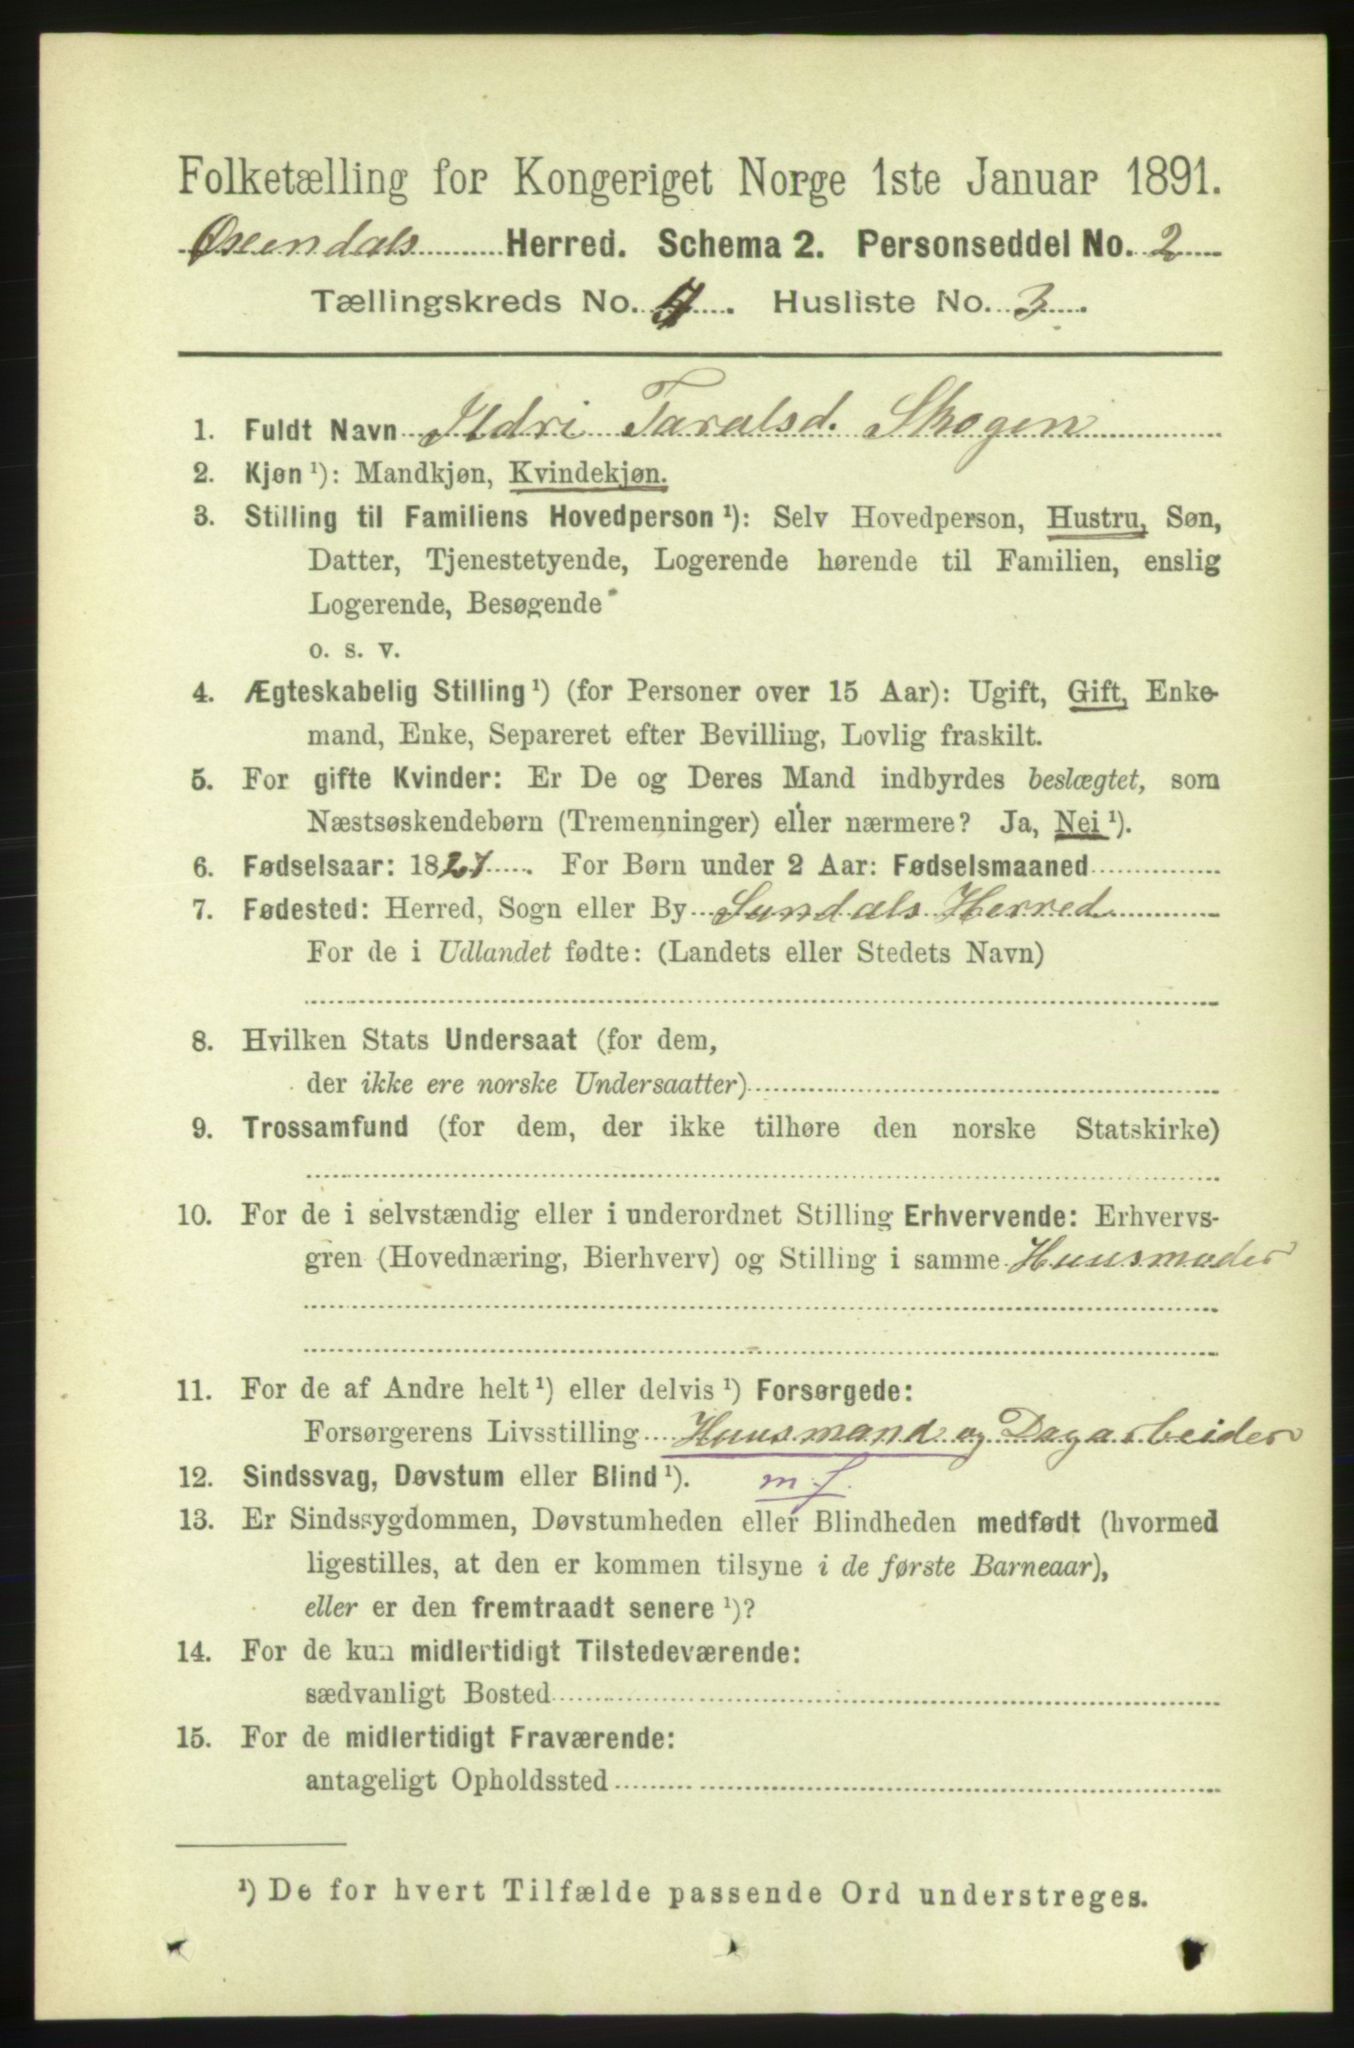 Folketælling for Kongeriget Norge 1ste Januar 1891.
Øxendals Herred. Schema 2. Personseddel No. 2
Tællingskreds No. 4. Husliste No. 3.
1. Fuldt Navn Ildri Taralsd. Skogen
2. Kjøn ¹): Mandkjøn, Kvindekjøn.
3. Stilling til Familiens Hovedperson ¹): Selv Hovedperson, Hustru, Søn,
Datter, Tjenestetyende, Logerende hørende til Familien, enslig
Logerende, Besøgende
o. s. v.
4. Ægteskabelig Stilling ¹) (for Personer over 15 Aar): Ugift, Gift, Enke-
mand, Enke, Separeret efter Bevilling, Lovlig fraskilt.
5. For gifte Kvinder: Er De og Deres Mand indbyrdes beslægtet, som
Næstsøskendebørn (Tremenninger) eller nærmere? Ja, Nei ¹).
6. Fødselsaar: 1827. For Børn under 2 Aar: Fødselsmaaned
7. Fødested: Herred, Sogn eller By Sundals Herred
For de i Udlandet fødte: (Landets eller Stedets Navn)
8. Hvilken Stats Undersaat (for dem,
der ikke ere norske Undersaatter)
9. Trossamfund (for dem, der ikke tilhøre den norske Statskirke)
10. For de i selvstændig eller i underordnet Stilling Erhvervende: Erhvervs-
gren (Hovednæring, Bierhverv) og Stilling i samme Huusmoder
11. For de af Andre helt ¹) eller delvis ¹) Forsørgede:
Forsørgerens Livsstilling Huusmand og Dagarbeider
12. Sindssvag, Døvstum eller Blind ¹). m f.
13. Er Sindssygdommen, Døvstumheden eller Blindheden medfødt (hvormed
ligestilles, at den er kommen tilsyne i de første Barneaar),
eller er den fremtraadt senere ¹)?
14. For de kun midlertidigt Tilstedeværende:
sædvanligt Bosted
15. For de midlertidigt Fraværende:
antageligt Opholdssted
¹) De for hvert Tilfælde passende Ord understreges.